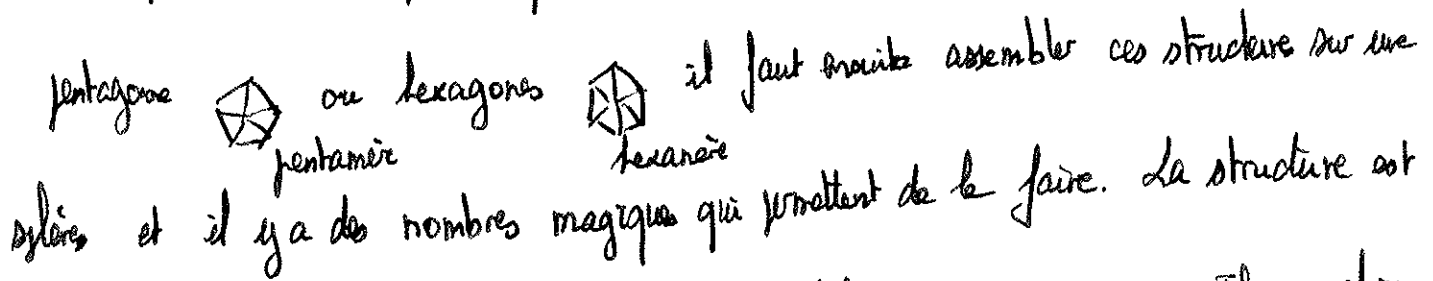 pentagone ou hexagones il faut ensuite assembler ces structure sur une
pentamère hexamère
sphère, et il y a des nombres magiques qui permettent de le faire. La structure est